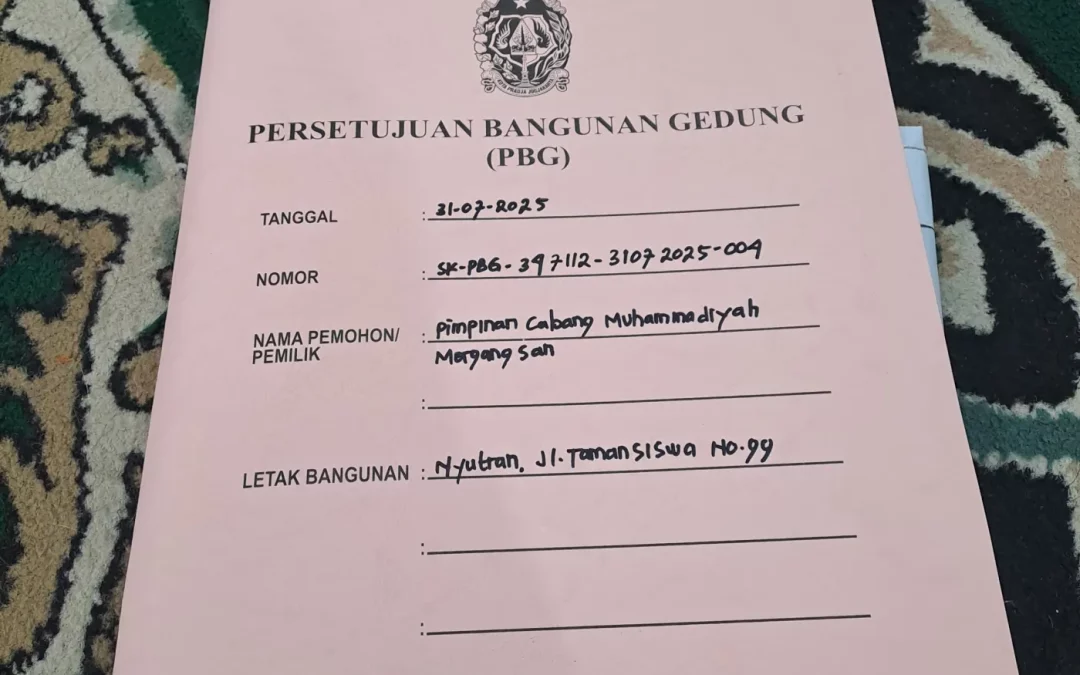 PERSETUJUAN BANGUNAN GEDUNG
(PBG)
TANGGAL : 31-07-2025
NOMOR : SK-PBG-347112-31072025-004
NAMA PEMOHON/ : Pimpinan Cabang Muhammadiyah
PEMILIK Mergangsan
:
LETAK BANGUNAN : Nyutran, Jl. Tamansiswa No.99
:
: